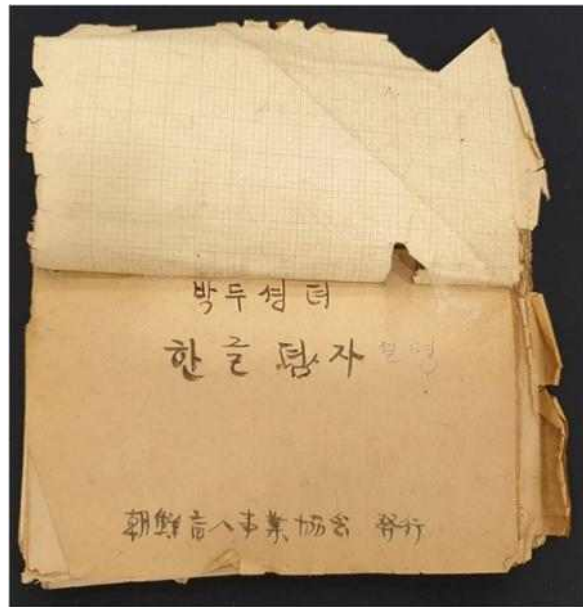 박두셩 뎌
한글 뎜자
朝鮮盲人事業協会 発行